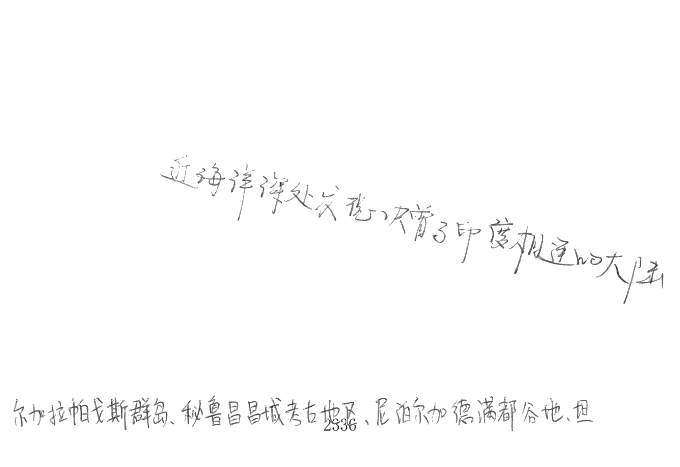 近海洋深处发现一次曾与印度相连的大陆
尔加拉帕戈斯群岛、秘鲁昌昌城考古地区、尼泊尔加德满都谷地、坦
2336